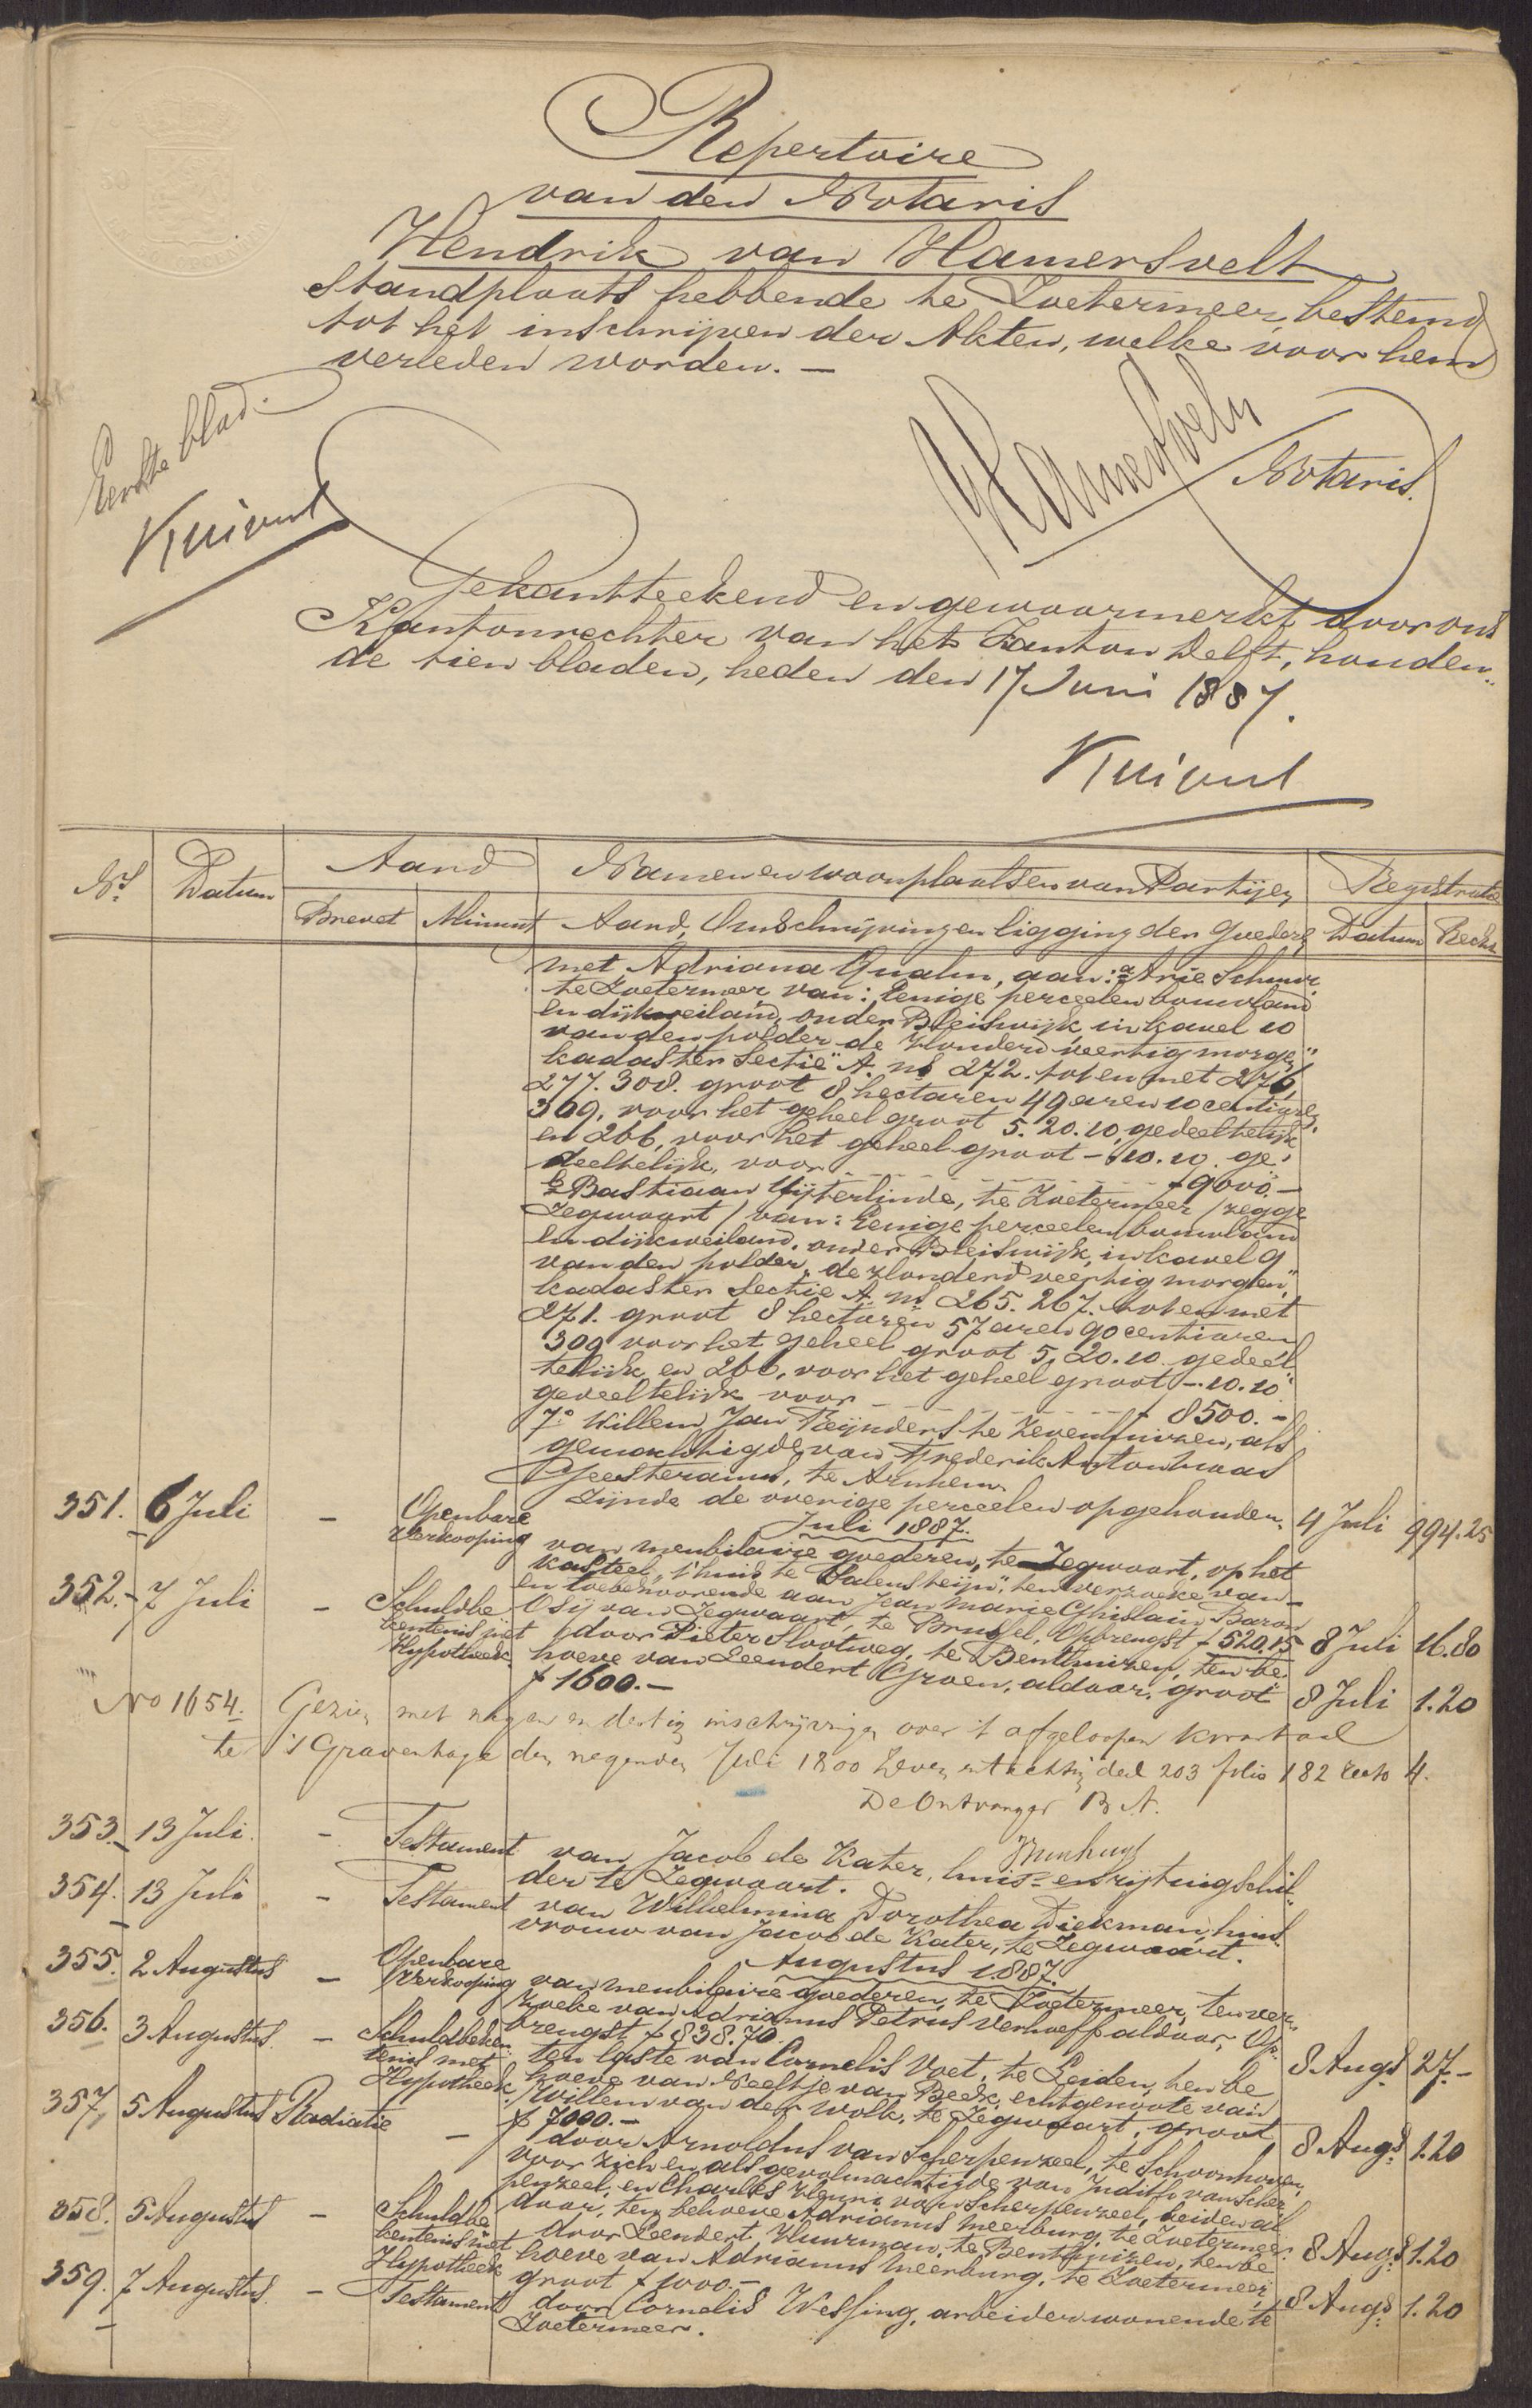 Repertoire
van den Notaris
Hendrik van Hamersvelt
Standplaats hebbende te Zoetermeer, bestemd
tot het inschrijven der Akten, welke voor hem
verleden worden. —
Eerste blad.
Hamersvelt
Notaris.
Gekantteekend en gewaarmerkt door ons
Kantonrechter van het Kanton Delft, houden„
de tien bladen, heden den 17 Juni 1887.
No. Datum Aard Namen en woonplaatsen van Partijen Registratie
Brevet Minuut Aard, Omschrijving en ligging der Goederen Datum Recht
met Adriana Qualm, aan: a Arie Schuur
te Zoetermeer, van: Eenige perceelen bouwland
en dijkweiland, onder Bleiswijk, in kavel 10
van den polder de Honderd veertig morgen"
kadaster Sectie A no 272. tot en met 276,
277. 308. groot 8 hectaren 49 aren 10 centiaren,
309, voor het geheel groot 5.20.10, gedeeltelijk
en 266, voor het geheel groot -.10.10. ge„
deeltelijk, voor - - - - f 9000.-
b Bastiaan Uijterlinde, te Zoetermeer / zegge
Zegwaart / van: Eenige perceelen bouwland
en dijkweiland, onder Bleiswijk, in kavel 9
van den polder „de Honderd veertig morgen",
kadaster Sectie A. no 265. 267. tot en met
271. groot 8 hectaren 57 aren 90 centiaren
309 voor het geheel groot 5.20.10. gedeel„
telijk en 266, voor het geheel groot -.10.10
gedeeltelijk voor - - - - f 8500.-
7o Willem Jan Reijnders te Zevenhuizen, als
gemachtigde van Frederik Anton Lucas
Geesteranus, te Arnhem.
Zijnde de overige perceelen opgehouden. 4 Juli 994.25
Juli 1887.
351. 6 Juli - Openbare Verkooping van meubilaire goederen, te Zegwaart, op het
kasteel „'t huis te Palensteijn", ten verzoeke van
en toebehoorende aan Jean Marie Ghislain Baron
Osij van Zegwaart, te Brussel, Opbrengst f 520.15 8 Juli 16.80
352. - 7 Juli - Schuldbekentenis met Hypotheek. door Pieter Slootweg, te Benthuizen, ten be„
hoeve van Leendert Groen, aldaar, groot
f 1600.- 8 Juli 1.20
No 1654. Gezien met negen en dertig inschrijvingen over 't afgeloopen kwartaal
te 's Gravenhage den negenden Juli 1800 zeven en tachtig deel 203 folio 182 recto 4.
De Ontvanger B.A.
353. 13 Juli. - Testament van Jacob de Kater, huis- en rijtuigschil„
der te Zegwaart.
354. 13 Juli - Testament van Wilhelmina Dorothea Diekman, huis„
vrouw van Jacob de Kater, te Zegwaart.
Augustus 1887.
355. 2 Augustus - Openbare Verkooping van meubilaire goederen, te Zoetermeer, ten ver„
zoeke van Adrianus Petrus Verhoeff aldaar, Op„
brengst f 838.70. 8 Augs 27.-
356. 3 Augustus. - Schuldbekentenis met Hypotheek ten laste van Cornelis Voet, te Leiden, ten be„
hoeve van Neeltje van Beek, echtgenoote van
Willem van der Wolk, te Zegwaart, groot
f 7000.- 8 Augs 1.20
357, 5 Augustus Radiatie - door Arnoldus van Scherpenzeel, te Schoonhoven,
voor zich en als gevolmachtigde van Judith van Scher„
penzeel, en Charles Henri van Scherpenzeel, beiden al„
daar, ten behoeve Adrianus Meerburg, te Zoetermeer. 8 Augs 1.20
358. 5 Augustus - Schuldbekentenis met Hypotheek door Leendert Huurman, te Benthuizen, ten be„
hoeve van Adrianus Meerburg, te Zoetermeer,
groot f 1000.- 8 Augs 1.20
359. 7 Augustus. - Testament door Cornelis Wessing, arbeider wonende te
Zoetermeer.